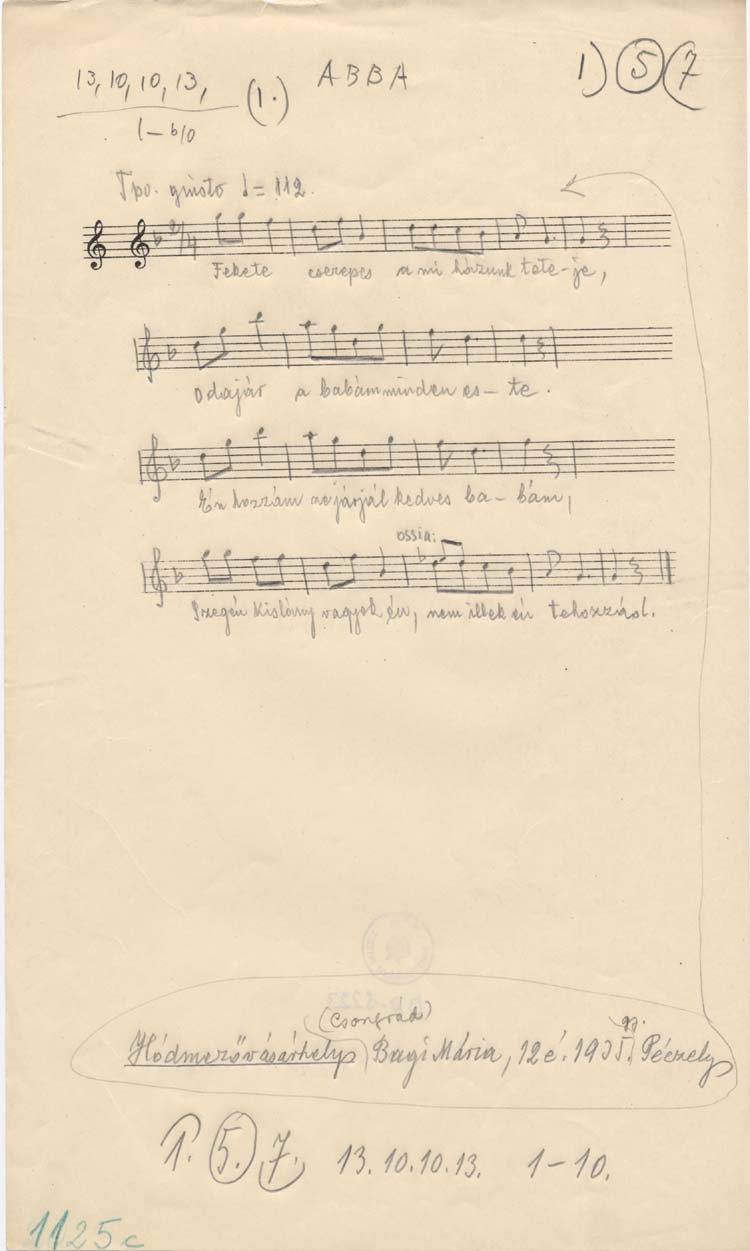 13, 10, 10, 13, (1.) ABBA 1) 5 (7
1–b10
Tpo. giusto ♩= 112.
2/4
Fekete cserepes a mi házunk tete-je,
Odajár a babám minden es-te.
Én hozzám ne járjál kedves ba-bám,
ossia:
Szegén kislány vagyok én, nem illek én tehozzád.
(Csongrád) gy.
Hódmezővásárhely, Bagi Mária, 12 é. 1935. Péczely
1. 5. 7. 13. 10. 10. 13. 1–10.
1125c